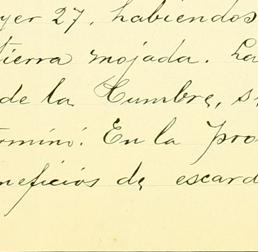 yer 27. habiendos
tierra mojada. La
de la Cumbre, s
terminó. En la pro
neficios de escard